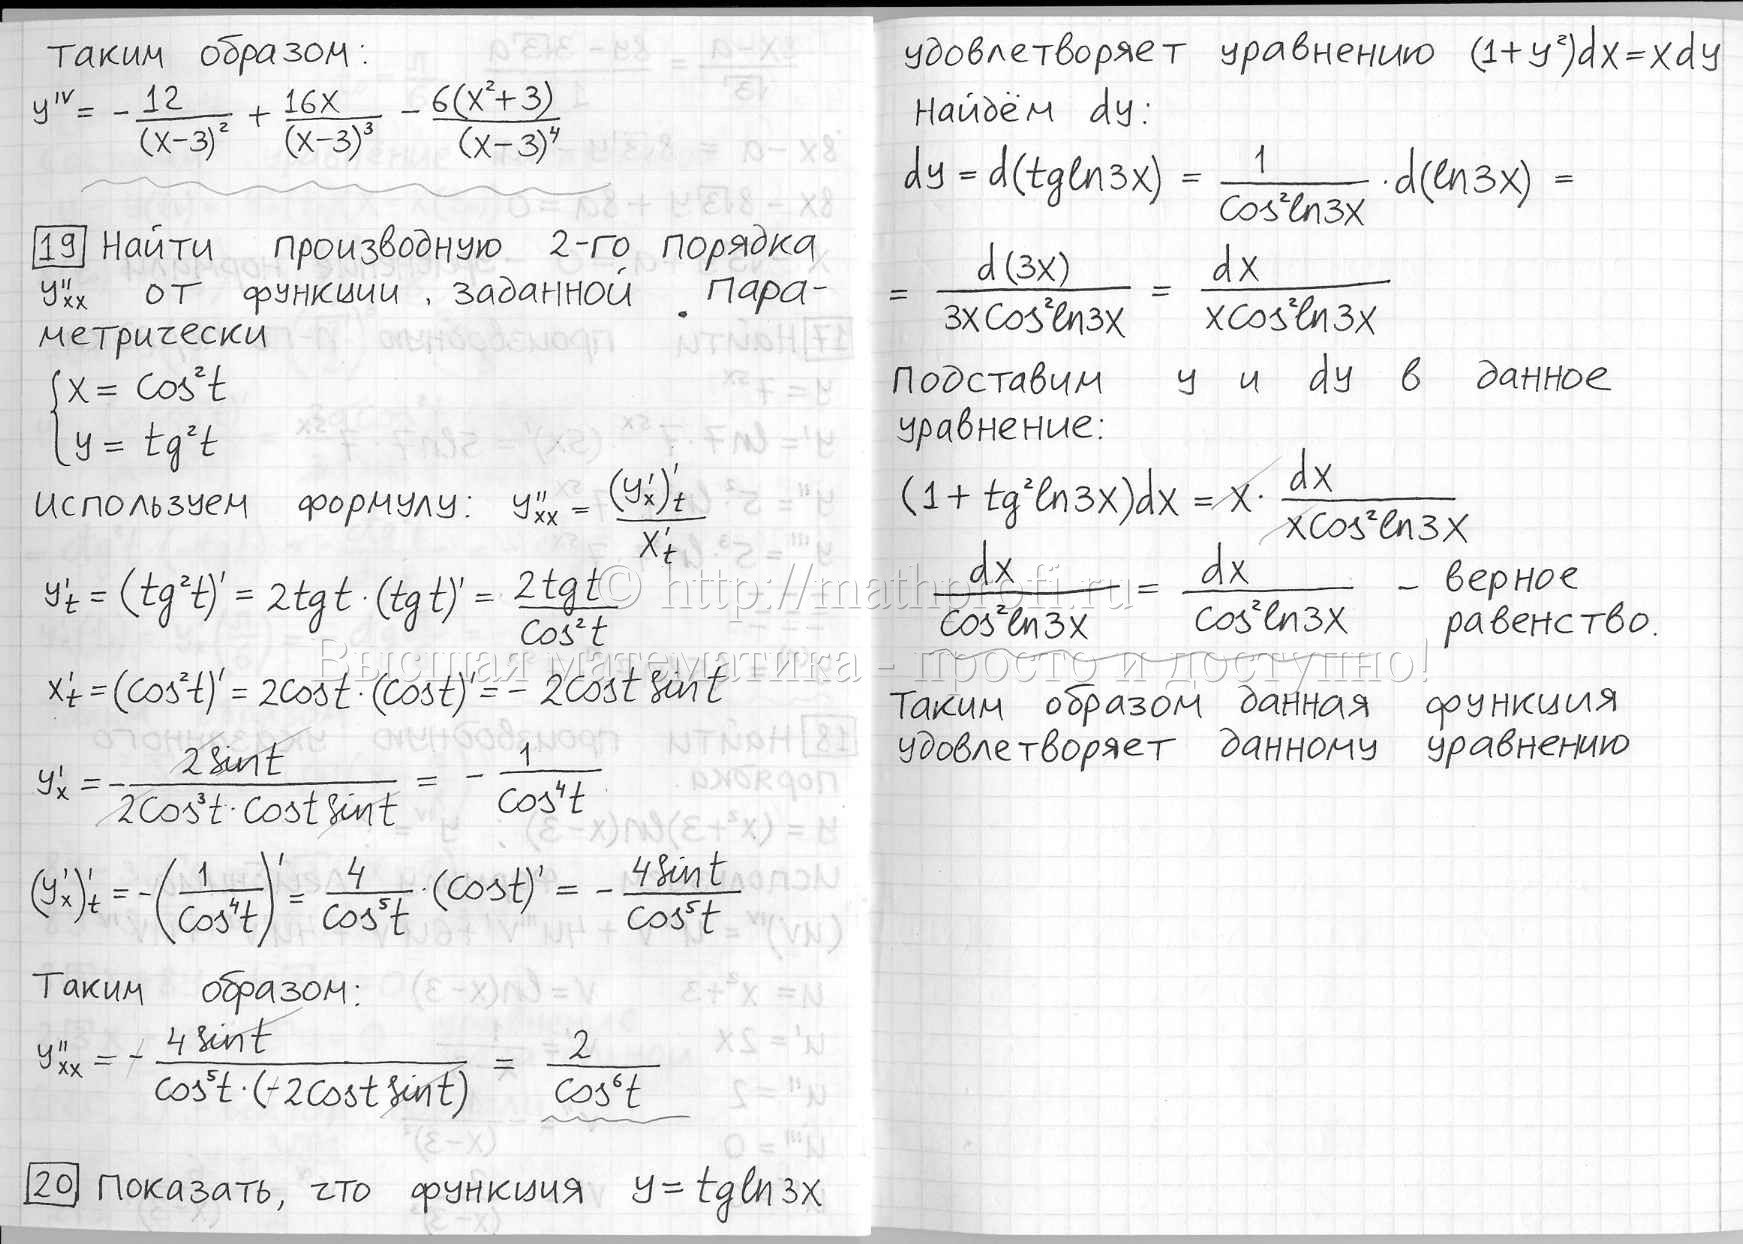 Таким образом:
y^IV = - 12/(x-3)² + 16x/(x-3)³ - 6(x²+3)/(x-3)⁴
19 Найти производную 2-го порядка
y''xx от функции, заданной пара-
метрически
{ x = cos²t
y = tg²t
Используем формулу: y''xx = (y'x)'t / x't
y't = (tg²t)' = 2tgt · (tgt)' = 2tgt / cos²t
x't = (cos²t)' = 2cost · (cost)' = - 2cost sint
y'x = - 2sint / (2cos³t · cost sint) = - 1/cos⁴t
(y'x)'t = -(1/cos⁴t)' = 4/cos⁵t · (cost)' = - 4sint/cos⁵t
Таким образом:
y''xx = - 4sint / (cos⁵t · (-2cost sint)) = 2/cos⁶t
20 Показать, что функция y = tgln3x
удовлетворяет уравнению (1+y²)dx = xdy
Найдём dy:
dy = d(tgln3x) = 1/cos²ln3x · d(ln3x) =
= d(3x)/(3xcos²ln3x) = dx/(xcos²ln3x)
Подставим y и dy в данное
уравнение:
(1 + tg²ln3x)dx = x · dx/(xcos²ln3x)
dx/cos²ln3x = dx/cos²ln3x - верное
равенство.
Таким образом данная функция
удовлетворяет данному уравнению
© http://mathprofi.ru
Высшая математика - просто и доступно!